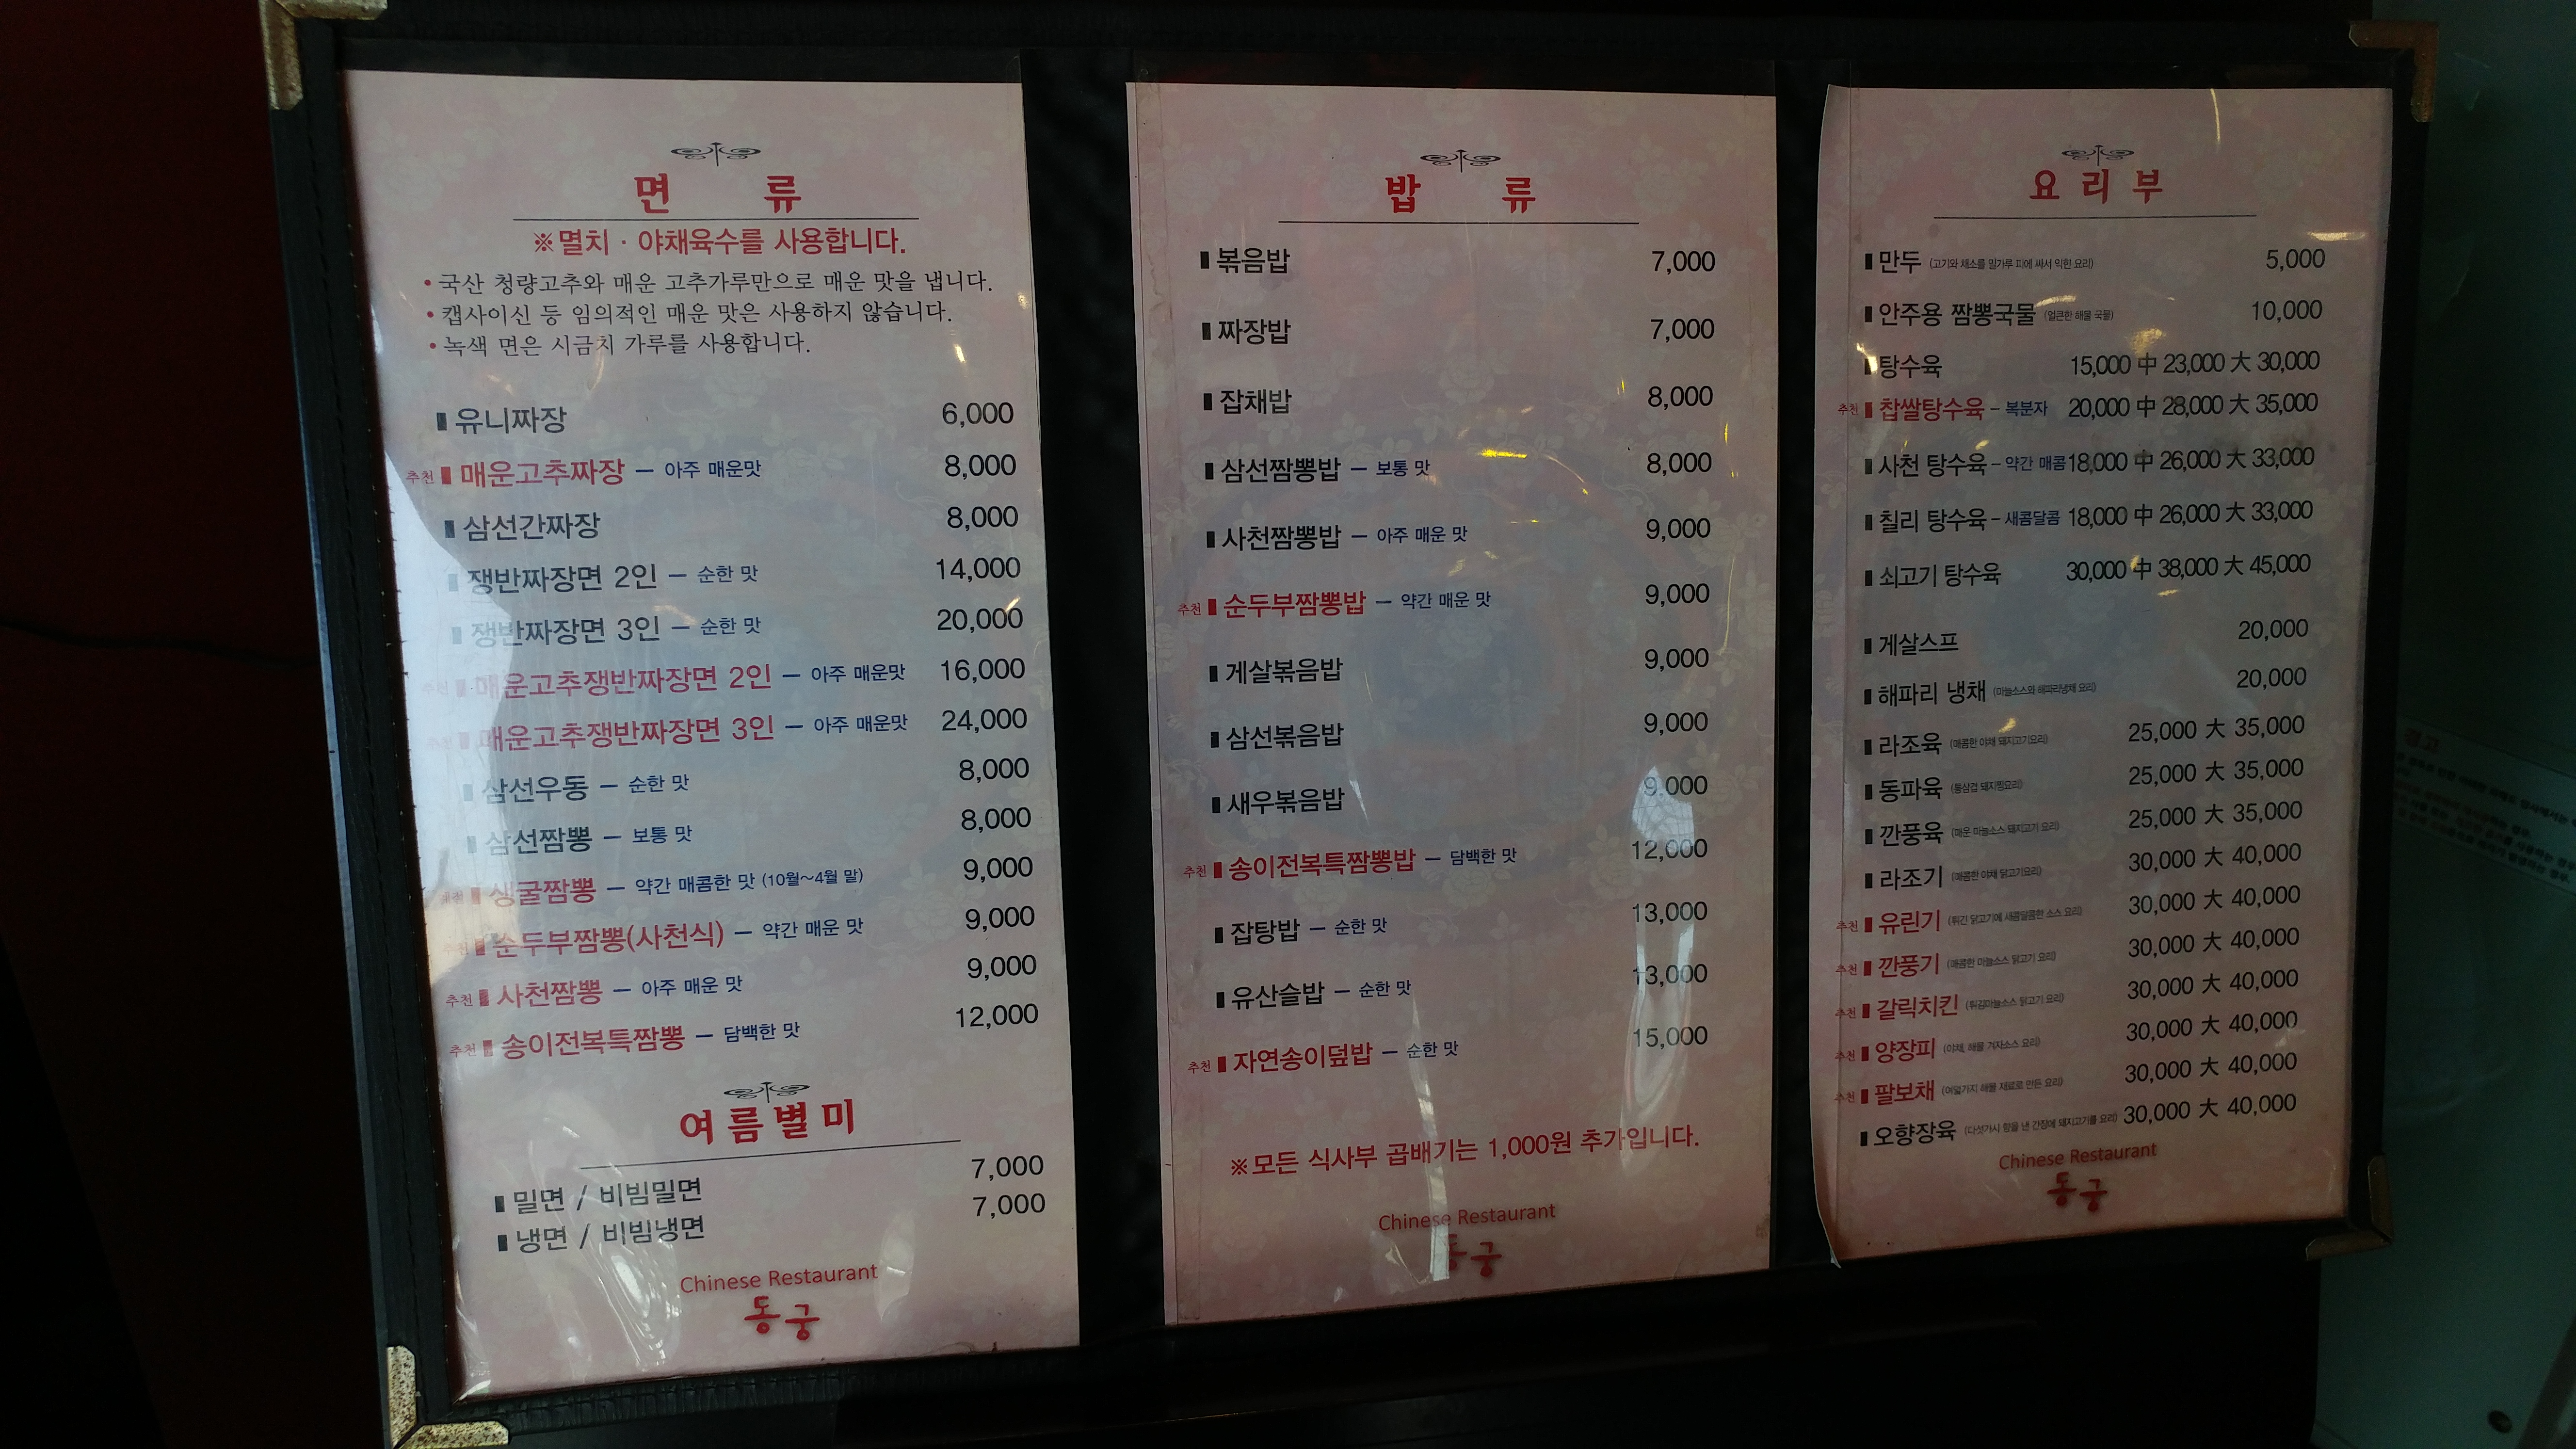 면 류
※멸치 · 야채육수를 사용합니다.
• 국산 청량고추와 매운 고추가루만으로 매운 맛을 냅니다.
• 캡사이신 등 임의적인 매운 맛은 사용하지 않습니다.
• 녹색 면은 시금치 가루를 사용합니다.
유니짜장 6,000
추천 매운고추짜장 – 아주 매운맛 8,000
삼선간짜장 8,000
쟁반짜장면 2인 – 순한 맛 14,000
쟁반짜장면 3인 – 순한 맛 20,000
추천 매운고추쟁반짜장면 2인 – 아주 매운맛 16,000
추천 매운고추쟁반짜장면 3인 – 아주 매운맛 24,000
삼선우동 – 순한 맛 8,000
삼선짬뽕 – 보통 맛 8,000
추천 생굴짬뽕 – 약간 매콤한 맛 (10월~4월 말) 9,000
추천 순두부짬뽕(사천식) – 약간 매운 맛 9,000
추천 사천짬뽕 – 아주 매운 맛 9,000
추천 송이전복특짬뽕 – 담백한 맛 12,000
여름별미
밀면 / 비빔밀면 7,000
냉면 / 비빔냉면 7,000
Chinese Restaurant
동궁
밥 류
볶음밥 7,000
짜장밥 7,000
잡채밥 8,000
삼선짬뽕밥 – 보통 맛 8,000
사천짬뽕밥 – 아주 매운 맛 9,000
추천 순두부짬뽕밥 – 약간 매운 맛 9,000
게살볶음밥 9,000
삼선볶음밥 9,000
새우볶음밥 9,000
추천 송이전복특짬뽕밥 – 담백한 맛 12,000
잡탕밥 – 순한 맛 13,000
유산슬밥 – 순한 맛 13,000
추천 자연송이덮밥 – 순한 맛 15,000
※모든 식사부 곱배기는 1,000원 추가입니다.
Chinese Restaurant
동궁
요리부
만두 (고기와 채소를 밀가루 피에 싸서 익힌 요리) 5,000
안주용 짬뽕국물 (얼큰한 해물 국물) 10,000
탕수육 15,000 中 23,000 大 30,000
추천 찹쌀탕수육 – 복분자 20,000 中 28,000 大 35,000
사천 탕수육 – 약간 매콤 18,000 中 26,000 大 33,000
칠리 탕수육 – 새콤달콤 18,000 中 26,000 大 33,000
쇠고기 탕수육 30,000 中 38,000 大 45,000
게살스프 20,000
해파리 냉채 (마늘소스와 해파리냉채 요리) 20,000
라조육 (매콤한 야채 돼지고기요리) 25,000 大 35,000
동파육 (통삼겹 돼지찜요리) 25,000 大 35,000
깐풍육 (매운 마늘소스 돼지고기 요리) 25,000 大 35,000
라조기 (매콤한 야채 닭고기요리) 30,000 大 40,000
추천 유린기 (튀긴 닭고기에 새콤달콤한 소스 요리) 30,000 大 40,000
추천 깐풍기 (매콤한 마늘소스 닭고기 요리) 30,000 大 40,000
추천 갈릭치킨 (튀김마늘소스 닭고기 요리) 30,000 大 40,000
추천 양장피 (야채, 해물 겨자소스 요리) 30,000 大 40,000
추천 팔보채 (여덟가지 해물 재료로 만든 요리) 30,000 大 40,000
오향장육 (다섯가지 향을 낸 간장에 돼지고기를 요리) 30,000 大 40,000
Chinese Restaurant
동궁